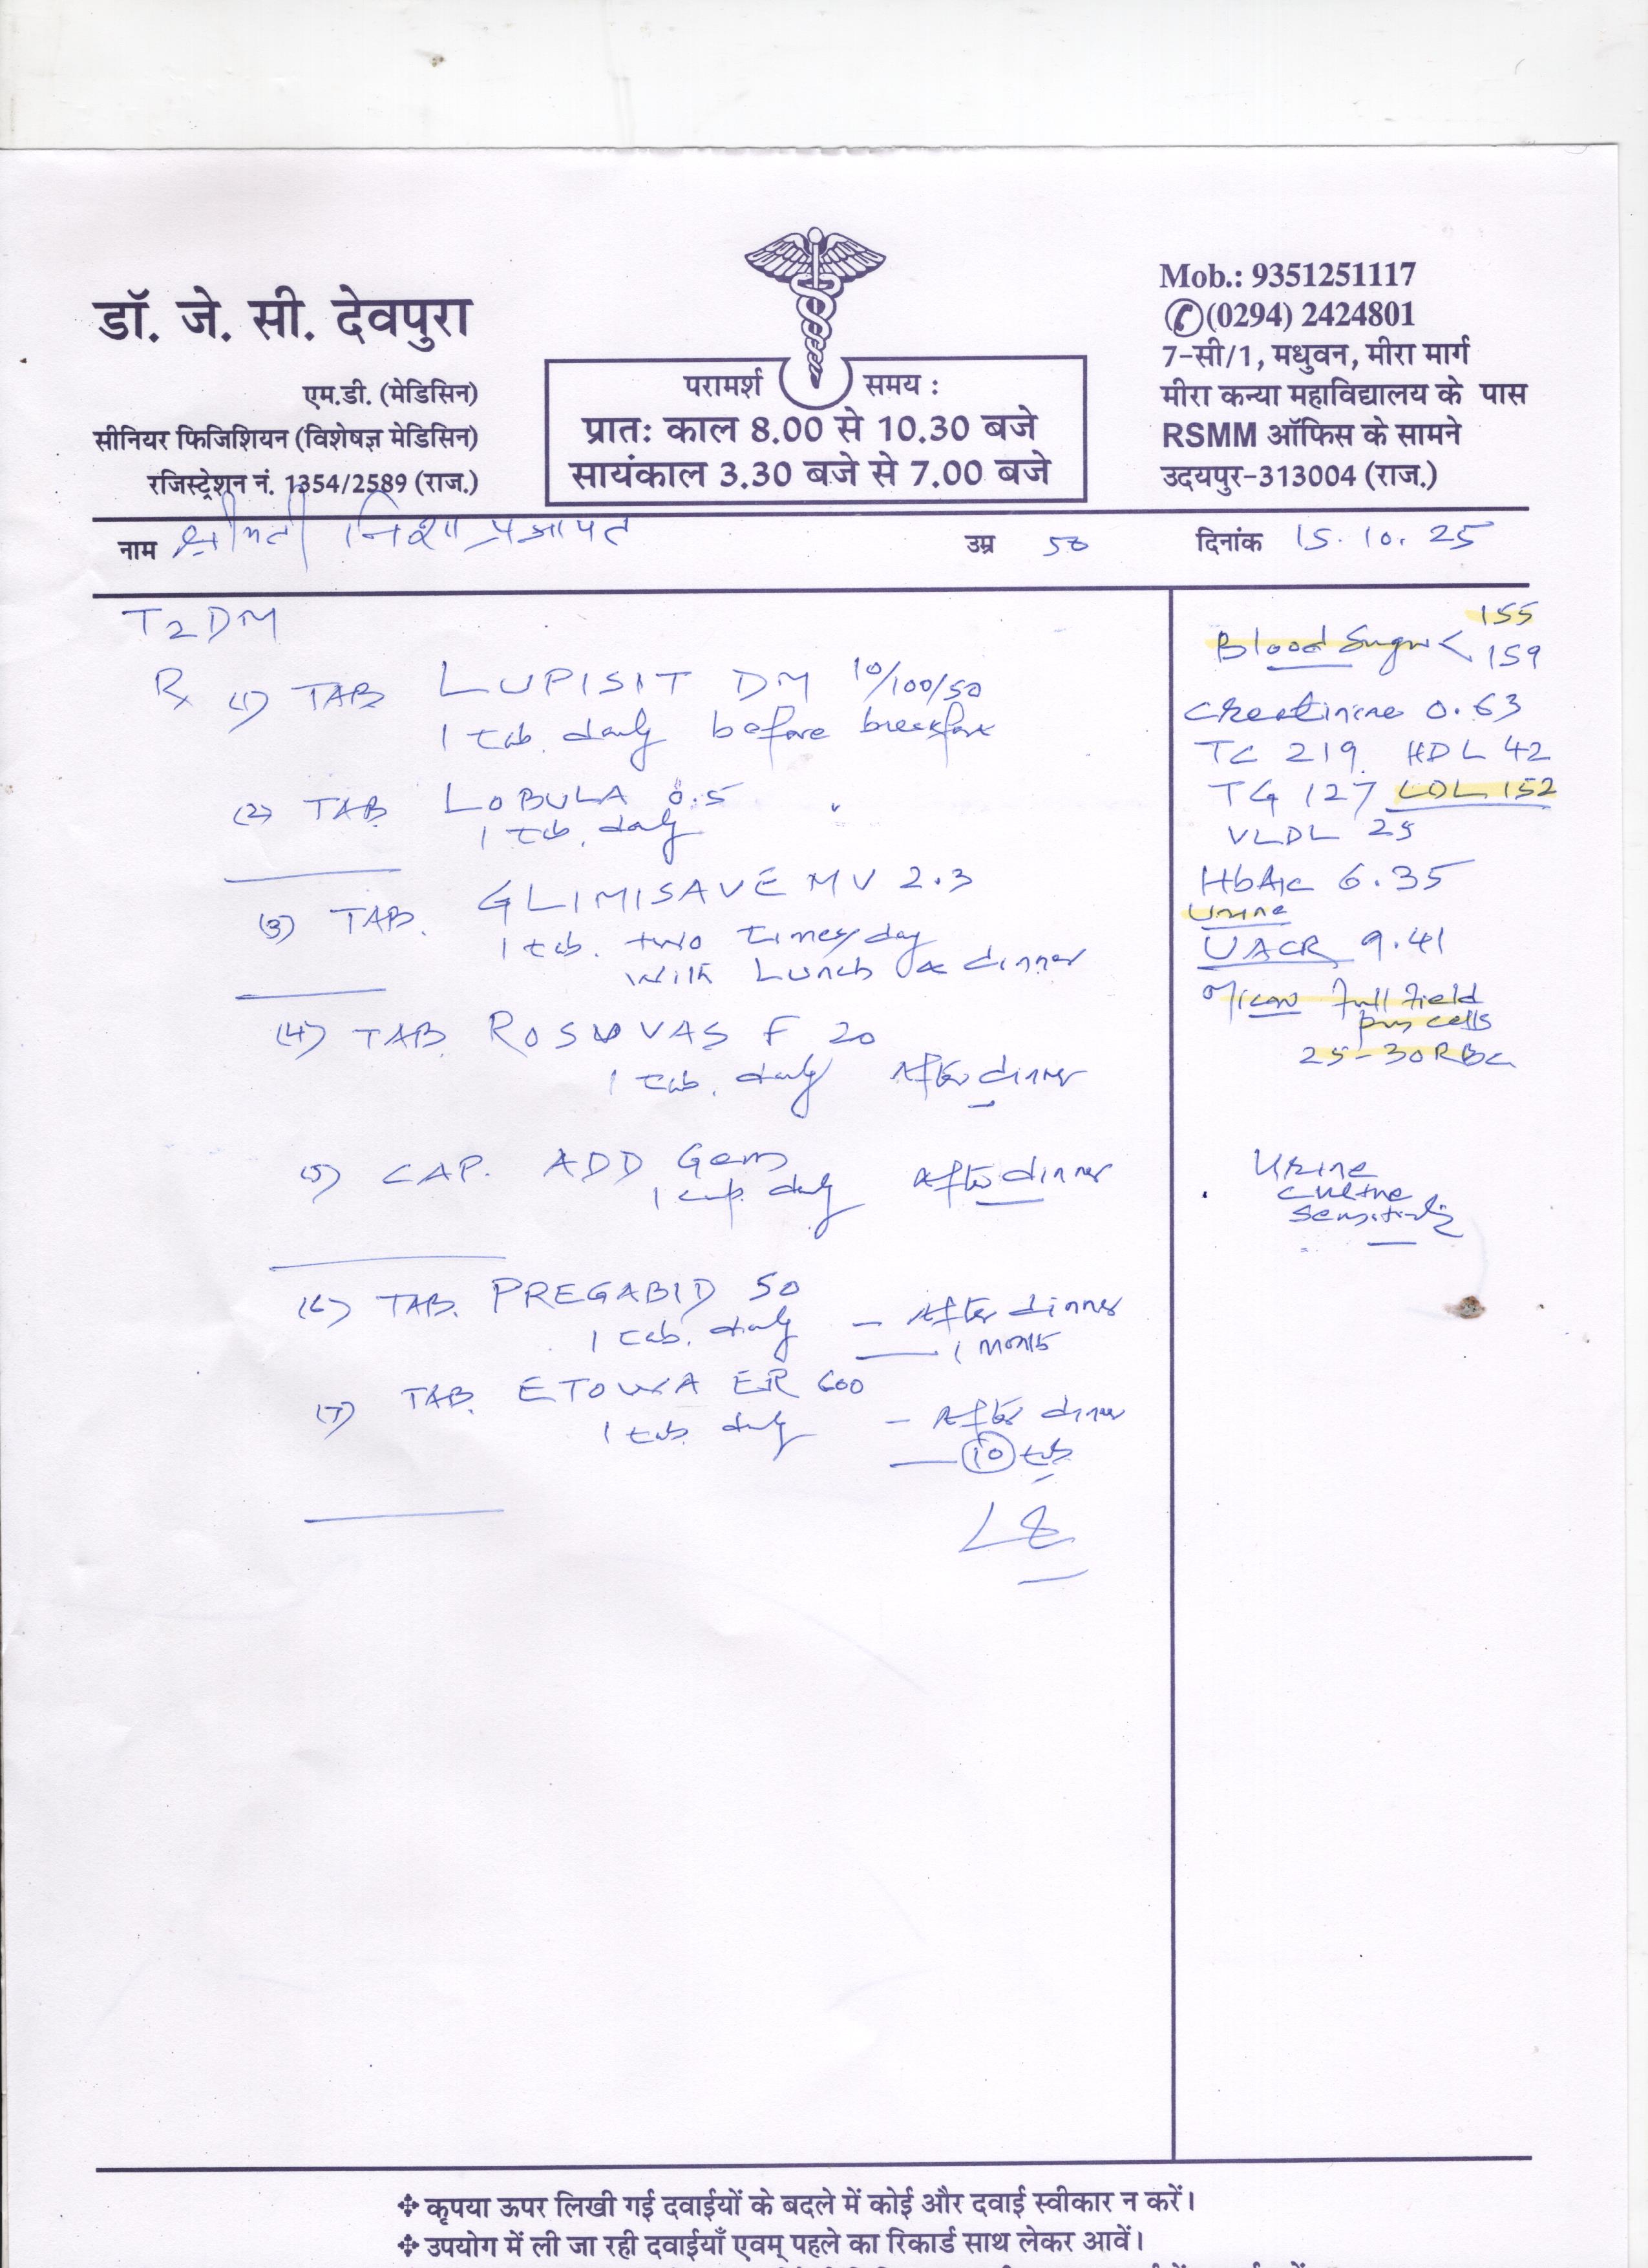 डॉ. जे. सी. देवपुरा
एम.डी. (मेडिसिन)
सीनियर फिजिशियन (विशेषज्ञ मेडिसिन)
रजिस्ट्रेशन नं. 1354/2589 (राज.)
परामर्श समय :
प्रातः काल 8.00 से 10.30 बजे
सायंकाल 3.30 बजे से 7.00 बजे
Mob.: 9351251117
(0294) 2424801
7-सी/1, मधुवन, मीरा मार्ग
मीरा कन्या महाविद्यालय के पास
RSMM ऑफिस के सामने
उदयपुर-313004 (राज.)
नाम श्रीमती निशा प्रजापत उम्र 50 दिनांक 15.10.25
T2DM
Rx (1) TAB LUPISIT DM 10/100/50
1 tab. daily before breakfast
(2) TAB LOBULA 0.5
1 tab. daily
(3) TAB. GLIMISAVE MV 2.3
1 tab. two times/day
with Lunch & dinner
(4) TAB ROSUVAS F 20
1 tab. daily After dinner
(5) CAP. ADD Gem
1 cap. daily After dinner
(6) TAB. PREGABID 50
1 tab. daily — After dinner
1 month
(7) TAB. ETOVA ER 600
1 tab. daily — After dinner
— 10 tab
Blood Sugar < 155
159
Creatinine 0.63
TC 219 HDL 42
TG 127 LDL 152
VLDL 25
HbA1c 6.35
Urine
UACR 9.41
full field
pus cells
25-30 RBC
Urine
culture
sensitivity
कृपया ऊपर लिखी गई दवाईयों के बदले में कोई और दवाई स्वीकार न करें।
उपयोग में ली जा रही दवाईयाँ एवम् पहले का रिकार्ड साथ लेकर आवें।